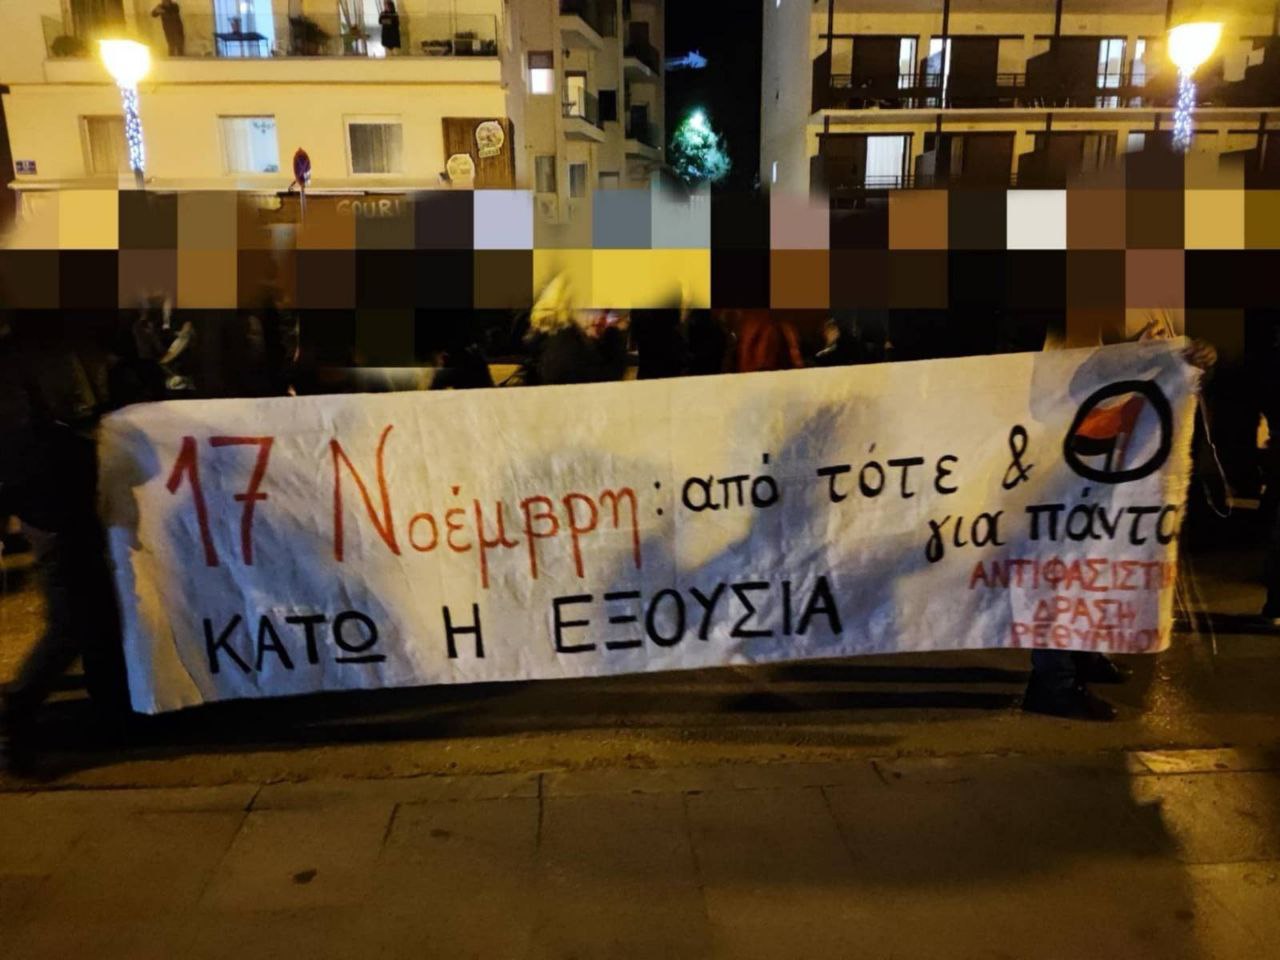 GOURI
17 Νοέμβρη: από τότε &
για πάντα
ΚΑΤΩ Η ΕΞΟΥΣΙΑ
ΑΝΤΙΦΑΣΙΣΤΙ
ΔΡΑΣΗ
ΡΕΘΥΜΝΟΥ